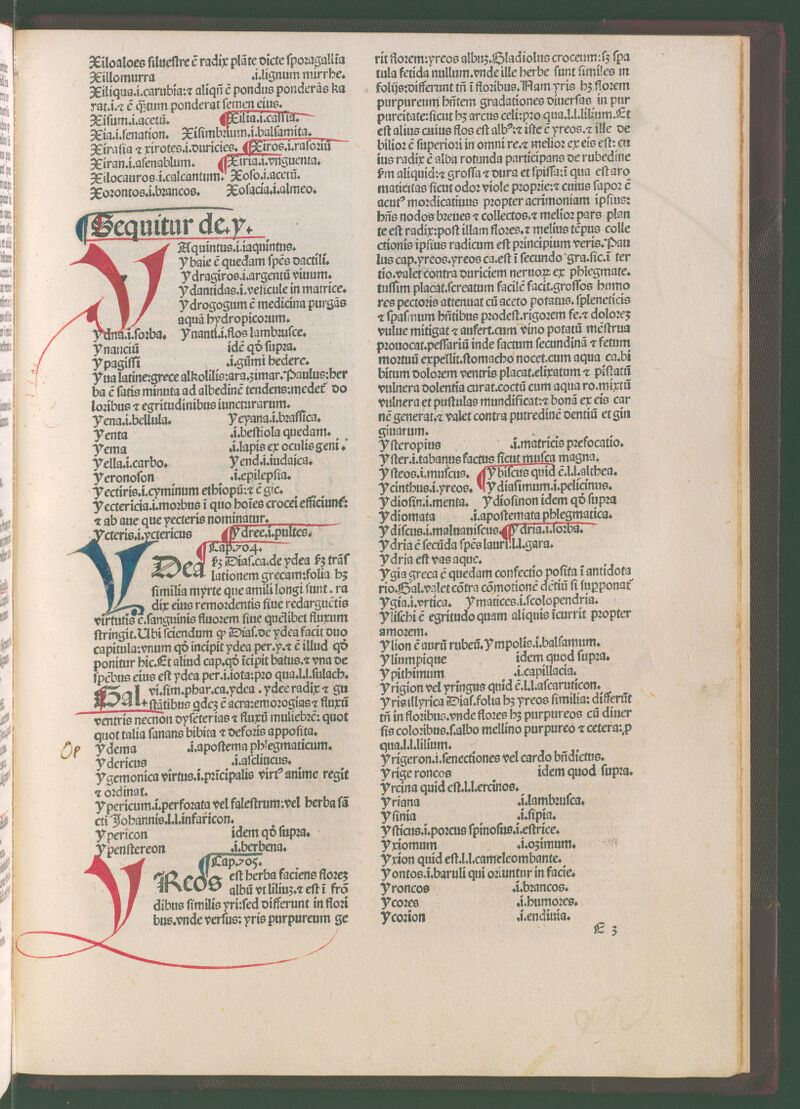 Xiloaloes siluestre ē radix plāte dicte sporagallia
Xillomurra .i.lignum mirrhe.
Xiliqua.i.carubia:⁊ aliqñ ē pondus ponderās ka
rat.i.⁊ ē q̄tum ponderat semen eius.
Xisum.i.acetū. Xilia.i.cassia.
Xia.i.senation. Xisimbrium.i.balsamita.
Xirasia ⁊ xirotes.i.duricies. Xiros.i.rasoriū
Xiran.i.asenablum. Xiria.i.vnguenta.
Xilocauros.i.calcantum. Xoso.i.acetū.
Xorontos.i.brancos. Xosacia.i.almeo.
Sequitur de.y.
YAquintus.i.iaquintus.
Ybaie ē quedam spēs dactili.
Ydragiros.i.argentū viuum.
Ydantidas.i.vesicule in matrice.
Ydrogogum ē medicina purgās
aquā hydropicorum.
Ydna.i.sorba. Ynanti.i.flos lambrusce.
Ynanciū idē qō supra.
Ypagissi .i.gūmi hedere.
Yua latine:grece alkolilis:ara.zimar.Paulus:her
ba ē satis minuta ad albedinē tendens:medet᷑ do
loribus ⁊ egritudinibus iuncturarum.
Yena.i.bellula. Yeyana.i.brassica.
Yenta .i.bestiola quedam.
Yema .i.lapis ex oculis geni.
Yella.i.carbo. Yend.i.iudaica.
Yeronoson .i.epilepsia.
Yectiris.i.cyminum ethiopū:⁊ ē gic.
Yectericia.i.morbus ī quo hoīes crocei efficiunt᷑:
⁊ ab aue que yecteris nominatur.
Ycteris.i.yctericus Ydree.i.pultes.
Cap.704.
YDea ꝼꝫ Dias.ca.de ydea ꝼꝫ trās
lationem grecam:folia hꝫ
similia myrte que amili longi sunt.ra
dix eius remordentis siue redarguētis
virtutis ē.sanguinis fluorem siue quēlibet fluxum
stringit.Ubi sciendum ꝙ Dias.de ydea facit duo
capitula:vnum qō incipit ydea per.y.⁊ ē illud qō
ponitur hic.Et aliud cap.qō īcipit batus.⁊ vna de
speb̄us eius est ydea per.i.iota:pro qua.l.l.sulach.
Gal. vi.sim.phar.ca.ydea.ydee radix ⁊ gu
stātibus qdeꝫ ē acra:emorogias ⁊ fluxū
ventris necnon dyseterias ⁊ fluxū muliebrē:quot
quot talia sanans bibita ⁊ deforis apposita.
Op
Ydema .i.apostema phlegmaticum.
Ydericus .i.asclincus.
Ygemonica virtus.i.prīcipalis virt᷒ anime regit
⁊ ordinat.
Ypericum.i.perforata vel falestrum:vel herba sā
cti Johannis.l.l.infaricon.
Ypericon idem qō supra.
Ypensterеon .i.berbena.
Cap.705.
YReos est herba faciens floreꝫ
albū vt liliuꝫ.⁊ est ī frō
dibus similis yri:sed differunt in flori
bus.vnde versus:yris purpureum ge
rit florem:yreos albuꝫ.Gladiolus croceum:sꝫ spa
tula fetida nullum.vnde ille herbe sunt similes in
folijs:differunt tñ ī floribus.Nam yris hꝫ florem
purpureum hñtem gradationes diuersas in pur
pureitate:sicut hꝫ arcus celi:pro qua.l.l.lilium.Et
est alius cuius flos est alb᷒:⁊ iste ē yreos.⁊ ille de
bilior ē superiori in omni re.⁊ melior ex eis est: cu
ius radix ē alba rotunda participans de rubedine
ꝼm aliquid:⁊ grossa ⁊ dura et spissa:ī qua est aro
maticitas sicut odor viole proprie:⁊ cuius sapor ē
acut᷒ mordicatiuus propter acrimoniam ipsius:
hñs nodos breues ⁊ collectos.⁊ melior pars plan
te est radix:post illam flores.⁊ melius tēpus colle
ctionis ipsius radicum est principium veris.Pau
lus cap.yreos.yreos ca.est ī secundo gra.sic.ī ter
tio.valet contra duriciem neruoꝝ ex phlegmate.
tussim placat.screatum facilē facit.grossos humo
res pectoris attenuat cū aceto potatus. spleneticis
⁊ spasmum hñtibus prodest.rigorem fe.⁊ doloreꝫ
vulue mitigat ⁊ aufert.cum vino potatū mēstrua
prouocat.pessariū inde factum secundinā ⁊ fetum
mortuū expellit.stomacho nocet.cum aqua ca.bi
bitum dolorem ventris placat.elixatum ⁊ pistatū
vulnera dolentia curat.coctū cum aqua ro.mixtū
vulnera et pustulas mundificat:⁊ bonā ex eis car
nē generat.⁊ valet contra putredinē dentiū et gin
giuarum.
Ysteropius .i.matricis prefocatio.
Yster.i.tabanus factus sicut musca magna.
Ysteos.i.muscus. Ybiscus quid ē.l.l.althea.
Ycinthus.i.yreos. Ydiasimum.i.pelicinus.
Ydiosin.i.menta. Ydiosinon idem qō supra
Ydiomata .i.apostemata phlegmatica.
Ydiscus.i.maluauiscus. Ydria.i.sorba.
Ydria ē secūda spēs lauri.l.l.gara.
Ydria est vas aque.
Ygia greca ē quedam confectio posita ī antidota
rio.Gal.valet cōtra cōmotionē dētiū si supponat᷑
Ygia.i.vrtica. Ymatices.i.scolopendria.
Ylischi ē egritudo quam aliquis īcurrit propter
amorem.
Ylion ē aurū rubeū. Ympolis.i.balsamum.
Yliumpique idem quod supra.
Ypithimum .i.capillacia.
Yrigion vel yringus quid ē.l.l.ascaruticon.
Yris illyrica Dias.folia hꝫ yreos similia: differūt
tñ in floribus.vnde flores hꝫ purpureos cū diuer
sis coloribus.s.albo mellino purpureo ⁊ cetera:ꝓ
qua.l.l.lilium.
Yrigeron.i.senectiones vel cardo bñdictus.
Yrige roncos idem quod supra.
Yrcina quid est.l.l.ercinos.
Yriana .i.lambrusca.
Ysinia .i.sipia.
Ysticus.i.porcus spinosus.i.estrice.
Yxiomum .i.ozimum.
Yxion quid est.l.l.cameleombante.
Yontos.i.baruli qui oriuntur in facie.
Yroncos .i.brancos.
Ycores .i.humores.
Ycorion .i.endiuia.
E 3